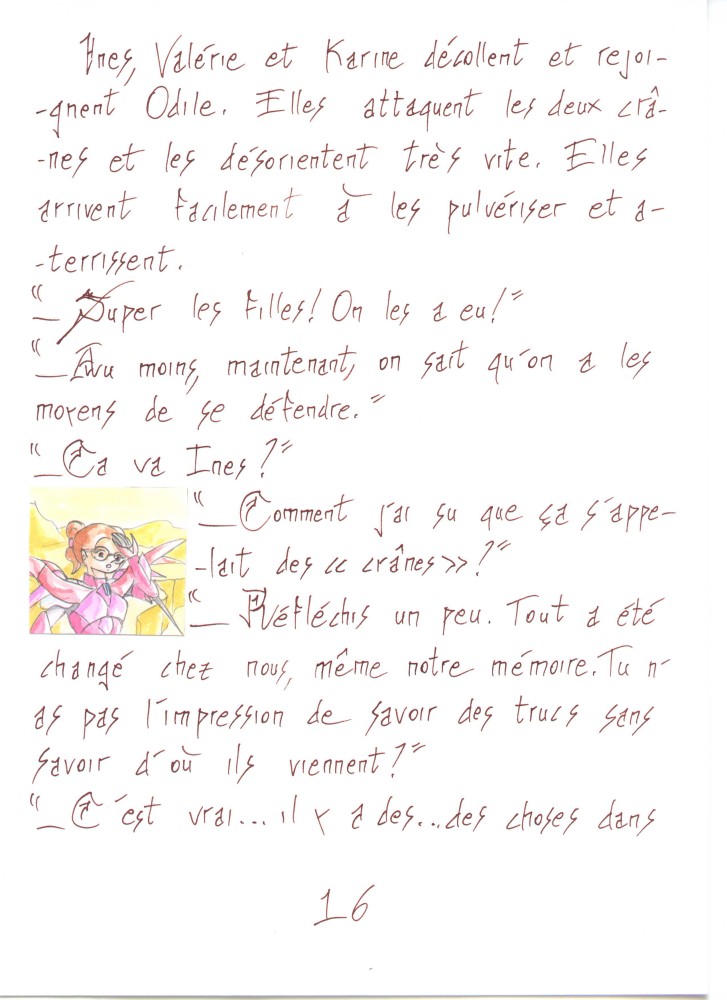 Ines, Valérie et Karine décollent et rejoi-
-gnent Odile. Elles attaquent les deux crâ-
-nes et les désorientent très vite. Elles
arrivent facilement à les pulvériser et a-
-terrissent.
"_Super les filles! On les a eu!"
"_Au moins, maintenant, on sait qu'on a les
moyens de se défendre."
"_Ça va Ines?"
"_Comment j'ai su que ça s'appe-
-lait des << crânes >>?"
"_Réfléchis un peu. Tout a été
changé chez nous, même notre mémoire. Tu n'
as pas l'impression de savoir des trucs sans
savoir d'où ils viennent?"
"_C'est vrai... il y a des... des choses dans
16